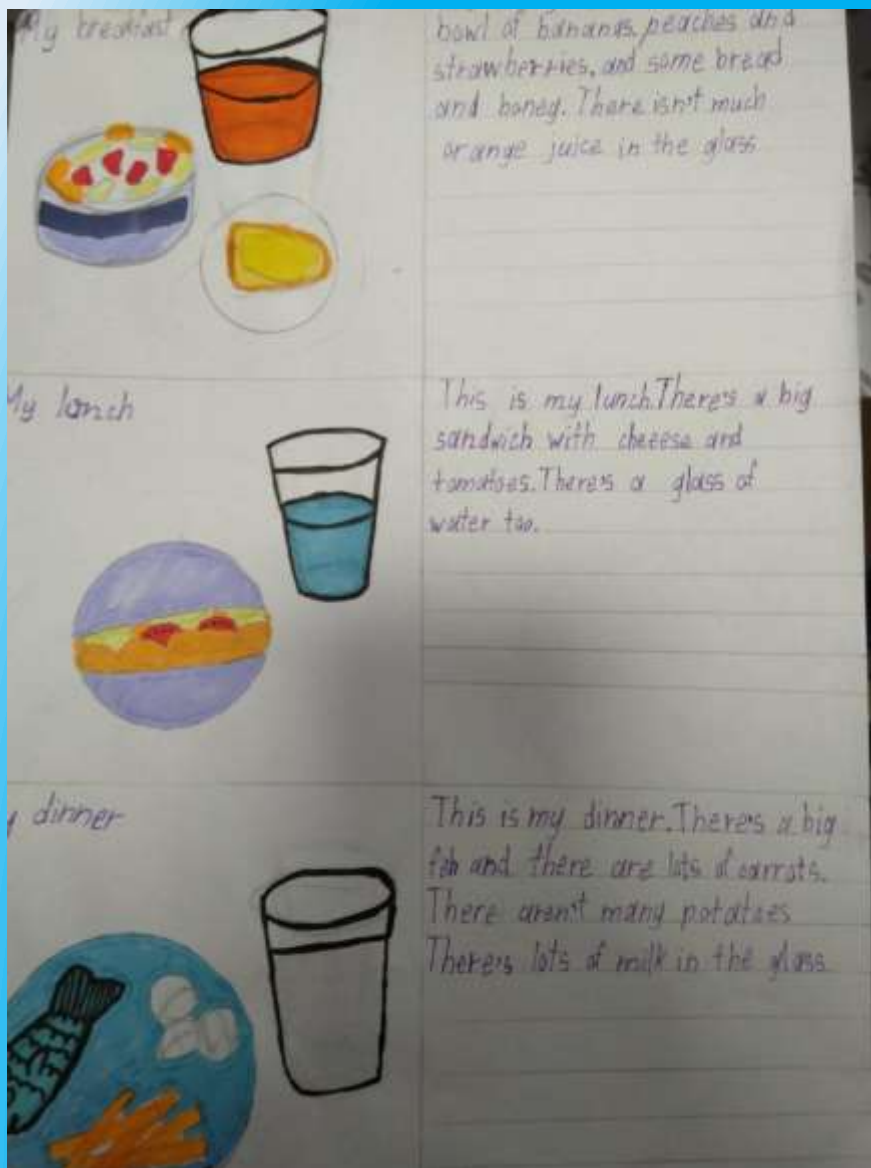 My breakfast
bowl of bananas, peaches and
strawberries, and some bread
and honey. There isn't much
orange juice in the glass
My lunch
This is my lunch. There's a big
sandwich with cheeese and
tomatoes. There's a glass of
water too.
y dinner
This is my dinner. There's a big
and there are lots of carrots.
There aren't many potatoes
There's lots of milk in the glass